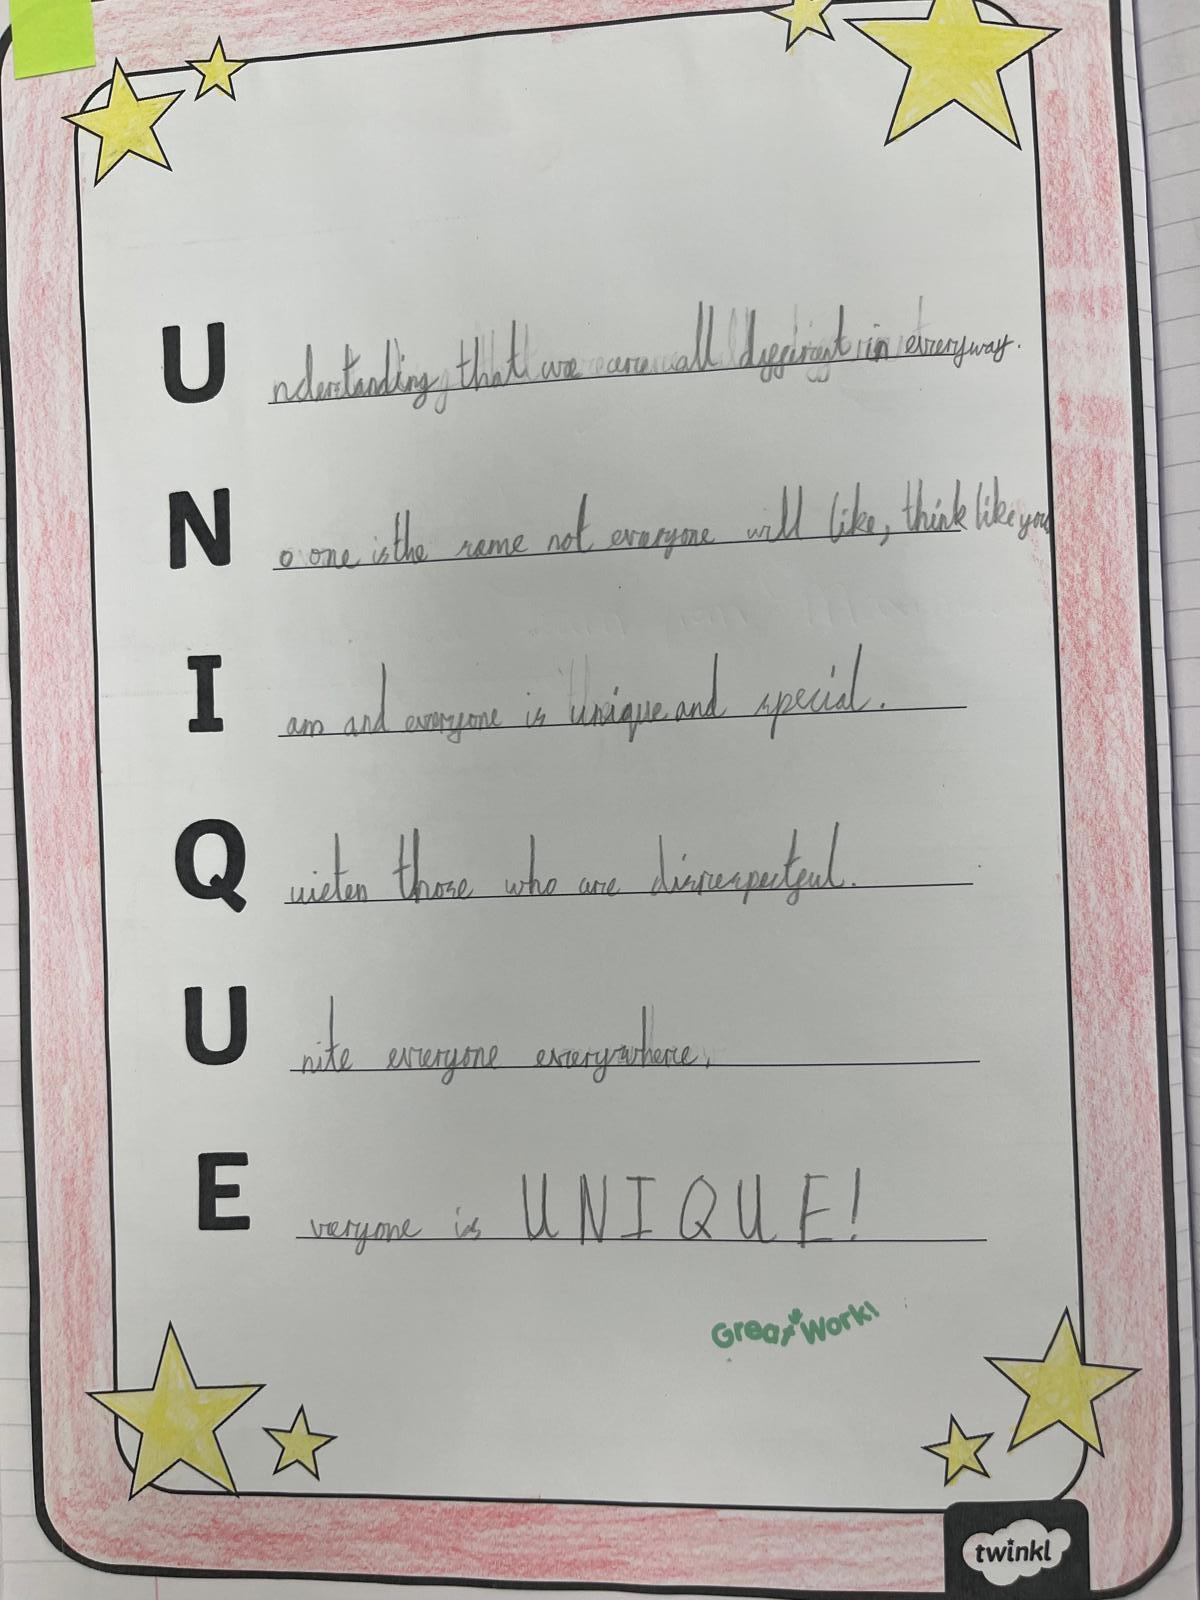 Understanding that we are all different in everyway.
No one is the same not everyone will like, think like you
I am and everyone is unique and special.
Quieten those who are disrespectful.
Unite everyone everywhere.
Everyone is UNIQUE!
Great Work!
twinkl